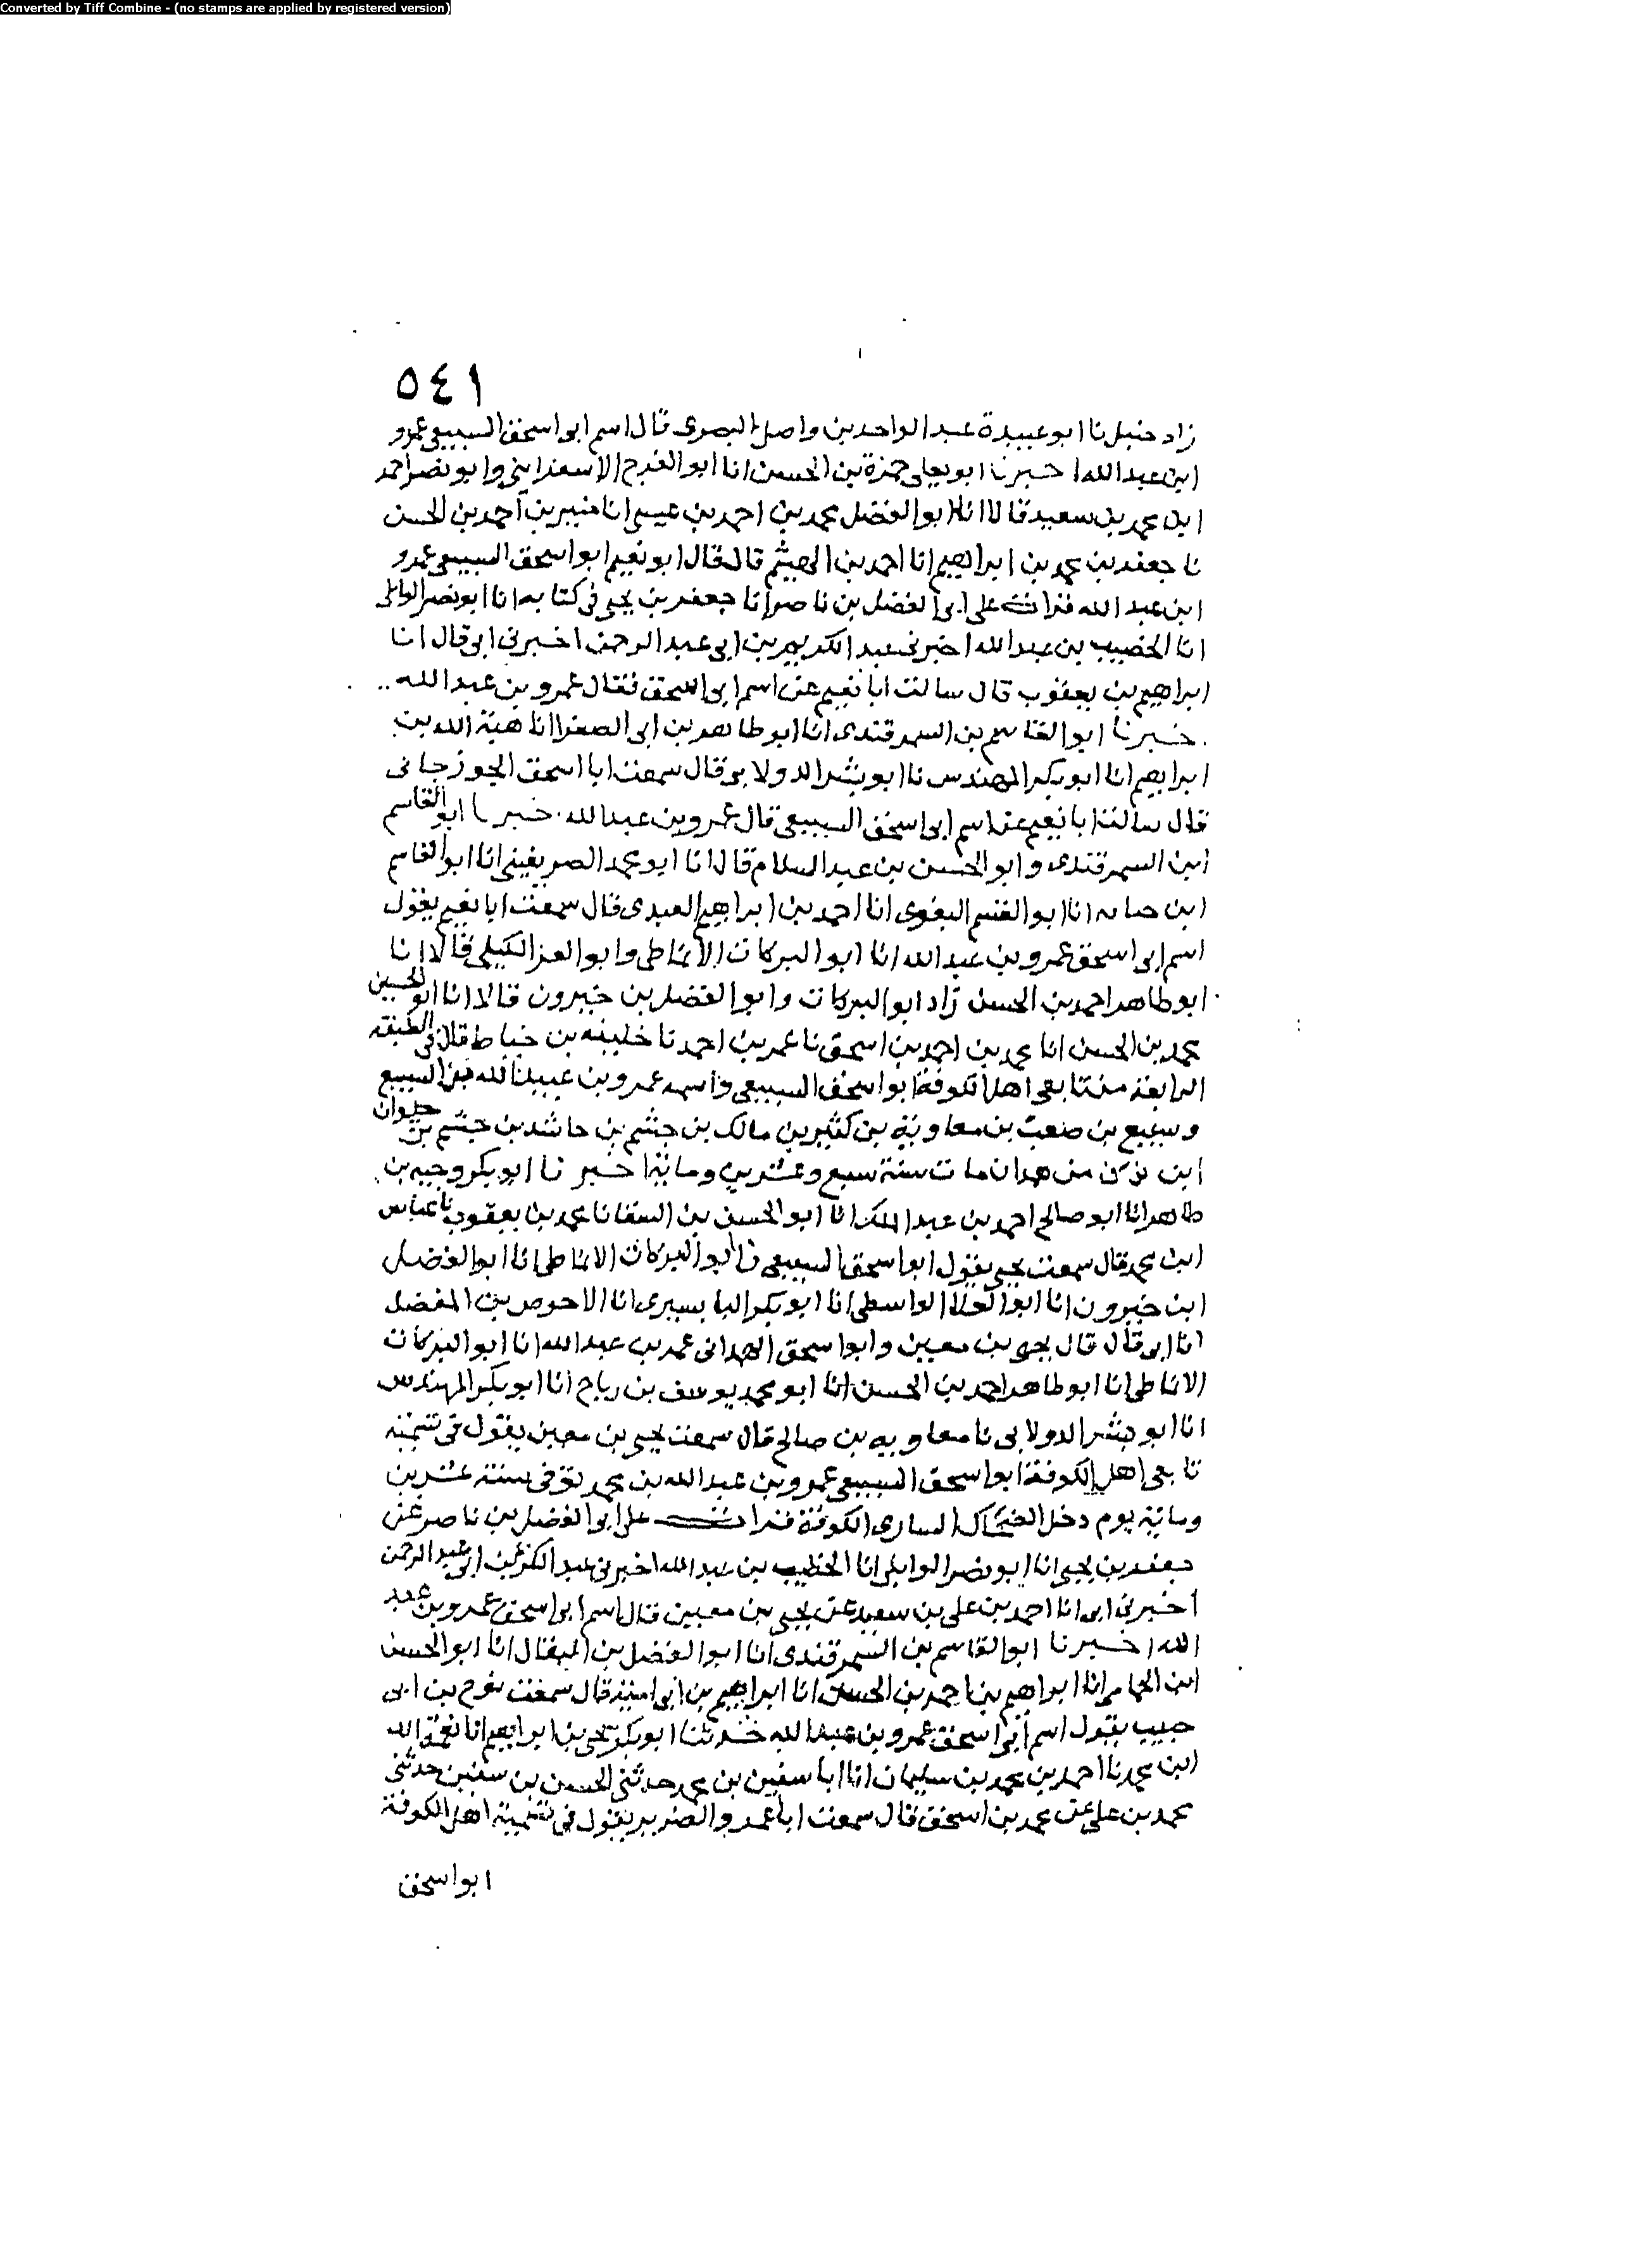 Converted by Tiff Combine - (no stamps are applied by registered version)
٥٤١
زاد حنبل نا ابو عبيدة عبد الواحد بن واصل البصرى قال اسم ابى اسحق السبيعى عمرو
ابن عبد الله اخبرنا ابو يعلى حمزة بن الحسين انا ابو الفرج الاسفراينى وابو نصر احمد
ابن محمد بن سعيد قالا انا ابو الفضل محمد بن احمد بن عيسى انا منير بن احمد بن الحسن
نا جعفر بن محمد بن ابراهيم انا احمد بن الهيثم قال قال ابو نعيم ابو اسحق السبيعى عمرو
ابن عبد الله قرات على ابى الفضل بن ناصر انا جعفر بن يحيى فى كتابه انا ابو نصر الوايلى
انا الخصيب بن عبد الله اخبرنى عبد الكريم بن ابى عبد الرحمن اخبرنى ابى قال انا
ابراهيم بن يعقوب قال سالت ابا نعيم عن اسم ابى اسحق فقال عمرو بن عبد الله
خبرنا ابو القاسم بن السمرقندى انا ابو طاهر بن ابى الصقر انا هبة الله بن
ابراهيم انا ابو بكر المهندس نا ابو بشر الدولابى قال سمعت ابا اسحق الجوزجانى
قال سالت ابا نعيم عن اسم ابى اسحق السبيعى قال عمرو بن عبد الله خبرنا ابو القاسم
ابن السمرقندى وابو الحسن بن عبد السلام قالا انا ابو محمد الصريفينى انا ابو القاسم
ابن حبابه انا ابو القسم البغوى انا احمد بن ابراهيم العبدى قال سمعت ابا نعيم يقول
اسم ابى اسحق عمرو بن عبد الله انا ابو البركات الانماطى وابو العز الكيلى قالا انا
ابو طاهر احمد بن الحسن زاد ابو البركات وابو الفضل بن خيرون قالا انا ابو الحسين
محمد بن الحسن انا محمد بن احمد بن اسحق نا عمر بن احمد نا خليفه بن خياط قال فى الطبقه
الرابعة من تابعى اهل الكوفة ابو اسحق السبيعى واسمه عمرو بن عبيد الله من السبيع
وسبيع بن صعب بن معاوية بن كثير بن مالك بن جشم بن حاشد بن جشم بن حلوان
ابن من همدان مات سنة سبع وعشرين ومائة اخبرنا ابو بكر وجيه بن
طاهر انا ابو صالح احمد بن عبد الملك انا ابو الحسن بن السقا نا محمد بن يعقوب نا عباس
ابن محمد قال سمعت يحيى يقول ابو اسحق السبيعى نا ابو البركات الانماطى انا ابو الفضل
ابن خيرون انا ابو العلا الواسطى انا ابو بكر البابسيرى انا الاحوص بن المفضل
انا ابى قال قال يحيى بن معين وابو اسحق الهمدانى عمرو بن عبد الله انا ابو البركات
الانماطى انا ابو طاهر احمد بن الحسن انا ابو محمد يوسف بن رباح انا ابو بكر المهندس
انا ابو بشر الدولابى نا معاويه بن صالح قال سمعت يحيى بن معين يقول فى تسمية
تابعى اهل الكوفة ابو اسحق السبيعى عمرو بن عبد الله بن محمد توفى سنة عشرين
ومائة يوم دخل الضحاك السارى الكوفة قرات على ابى الفضل بن ناصر عن
جعفر بن يحيى انا ابو نصر الوايلى انا الخطيب بن عبد الله اخبرنى عبد الكريم بن ابى عبد الرحمن
اخبرنى ابى انا احمد بن على بن سعيد عن يحيى بن معين قال اسم ابى اسحق عمرو بن عبد
الله اخبرنا ابو القاسم بن السمرقندى انا ابو الفضل بن البقال انا ابو الحسن
ابن الحمامى انا ابراهيم بن احمد بن الحسن انا ابراهيم بن ابى امية قال سمعت نوح بن ابى
حبيب يقول اسم ابى اسحق عمرو بن عبد الله حدثنا ابو بكر يحيى بن ابراهيم انا نعمة الله
ابن محمد نا احمد بن محمد بن سليمان انا ابا سفين بن محمد حدثنى الحسن بن سفين حدثنى
محمد بن على عن محمد بن اسحق قال سمعت ابا عمرو الضرير يقول فى تسمية اهل الكوفة
ابو اسحق